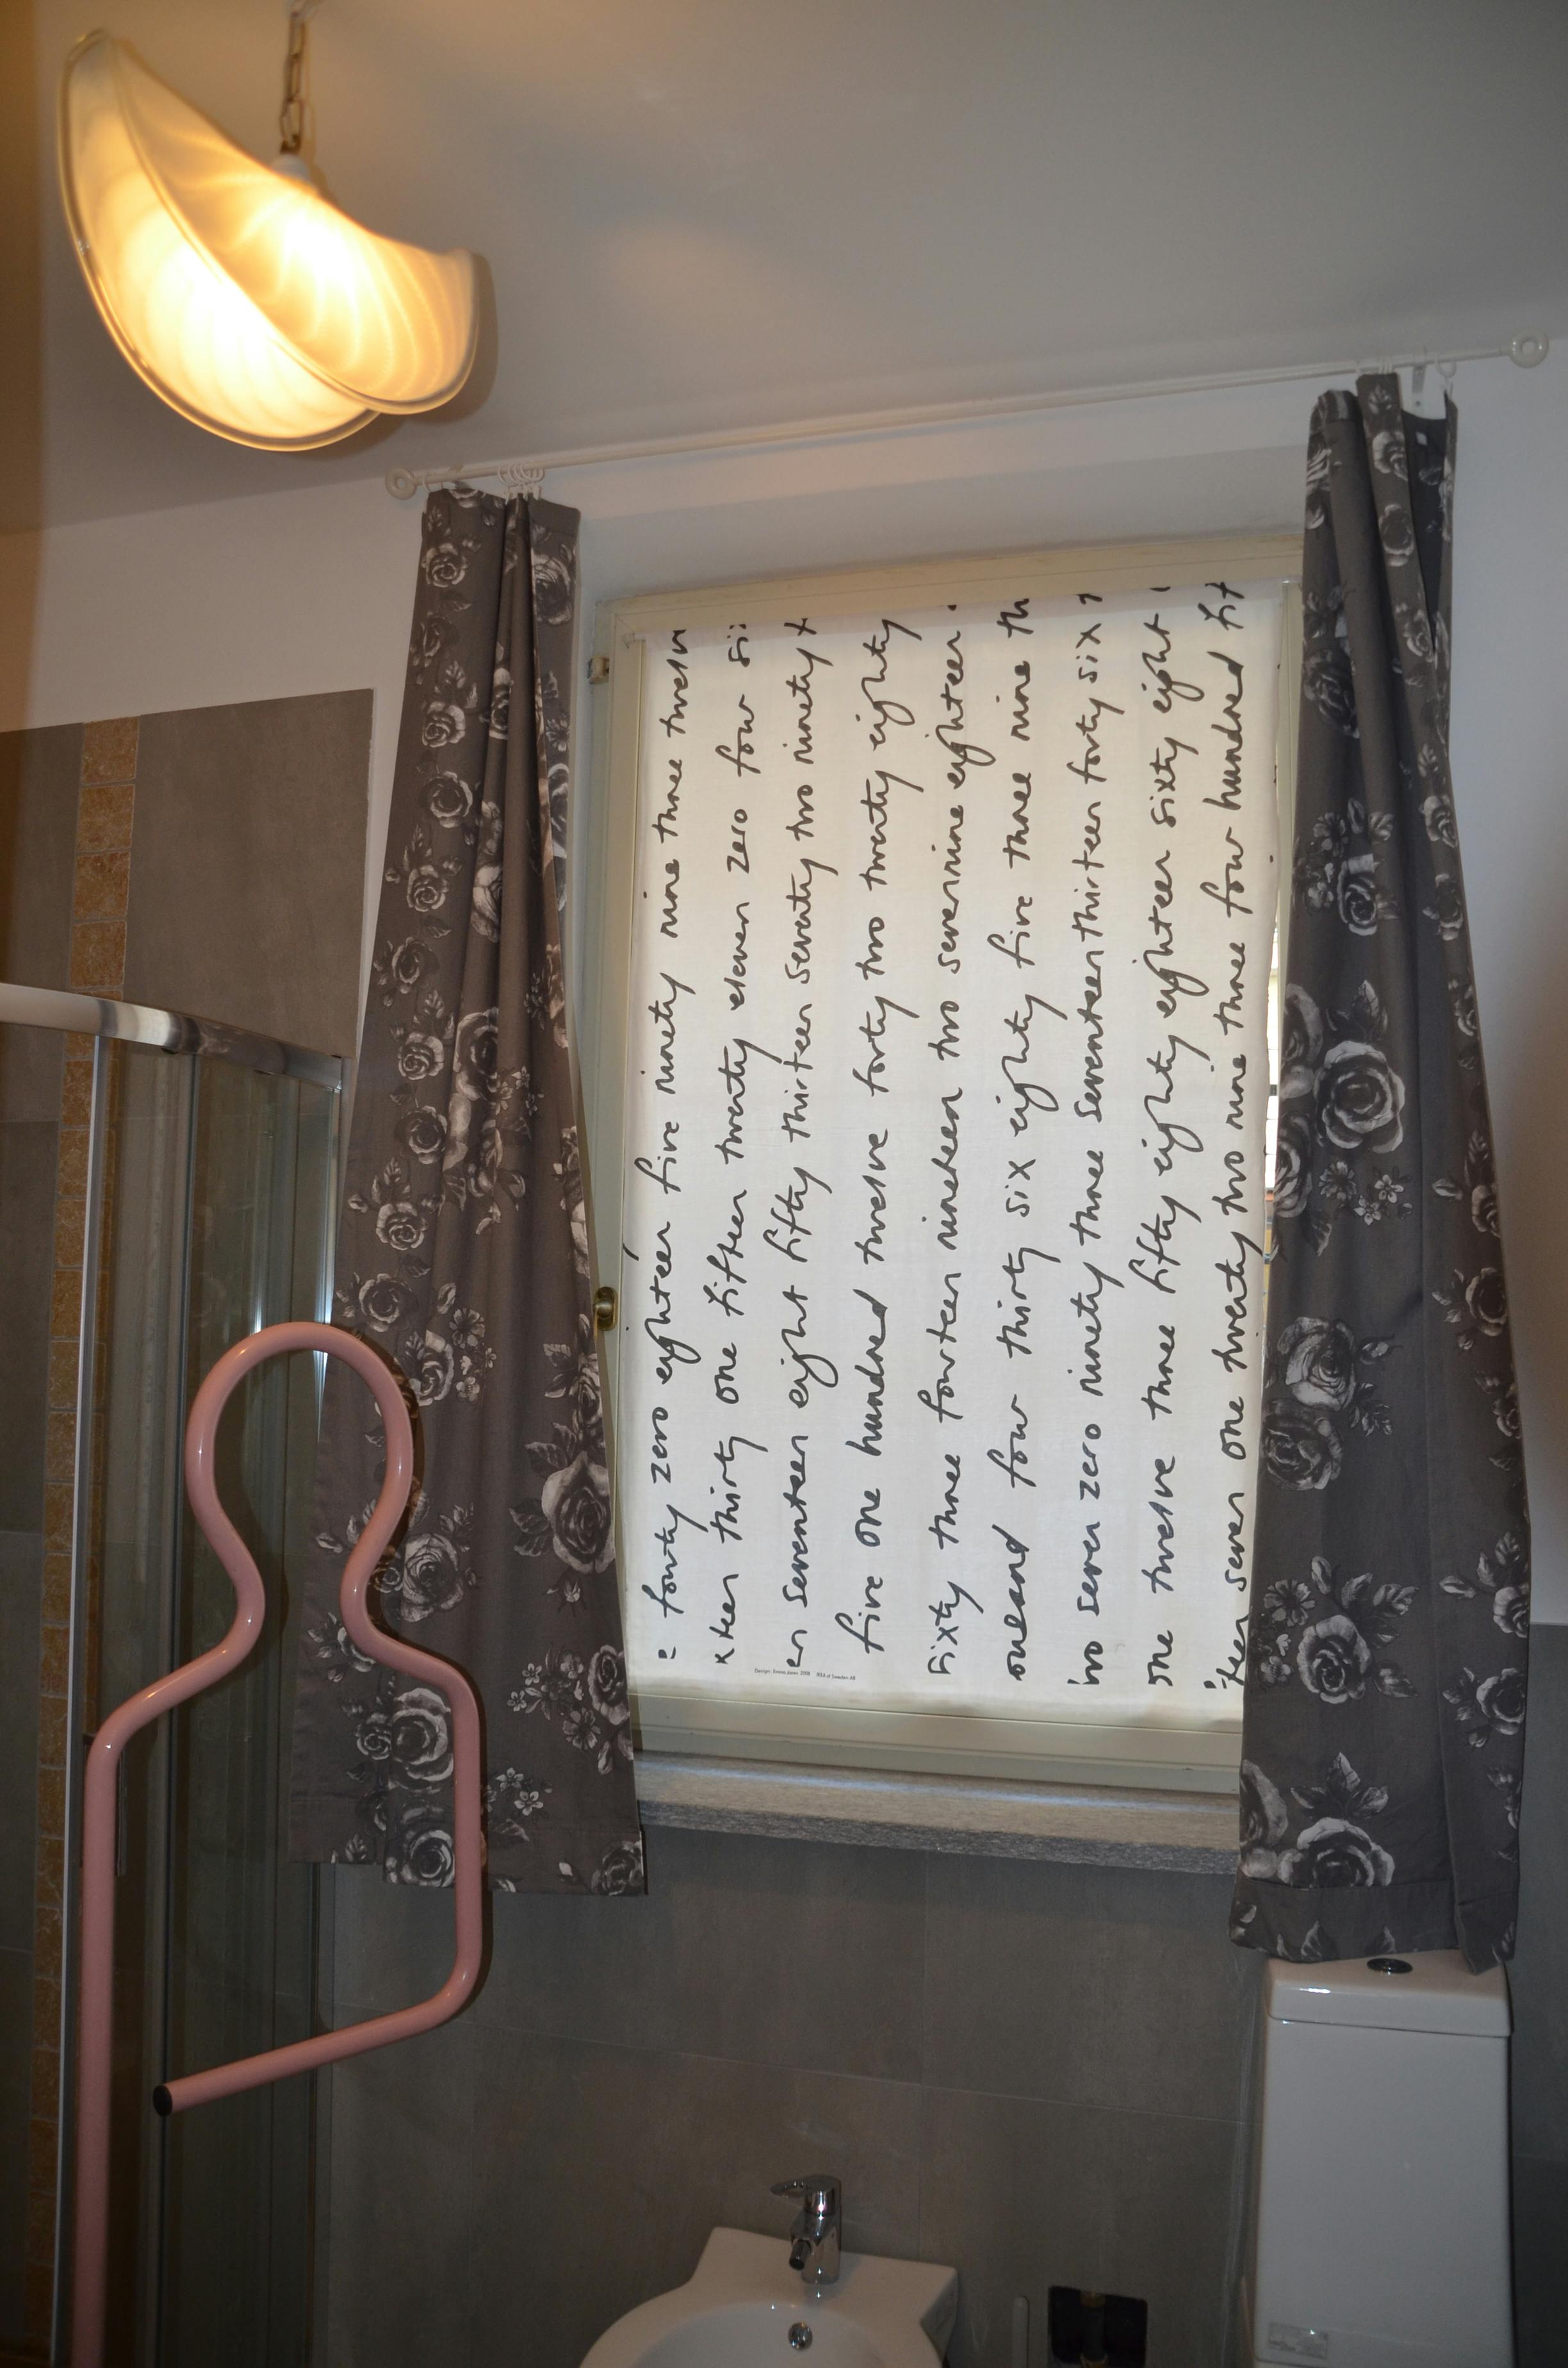 forty zero eighteen five ninety nine three twelv
thirty one fifteen twenty eleven zero four si
en seventeen eight fifty thirteen seventy two ninety t
five one hundred twelve forty two twenty eighty
sixty three fourteen nineteen two seven nine eighteen
ousand four thirty six eighty five three nine th
wo seven zero ninety three seventeen thirteen forty six
one twelve three fifty eighty eighteen sixty eight
teen seven one twenty two nine three four hundred fif